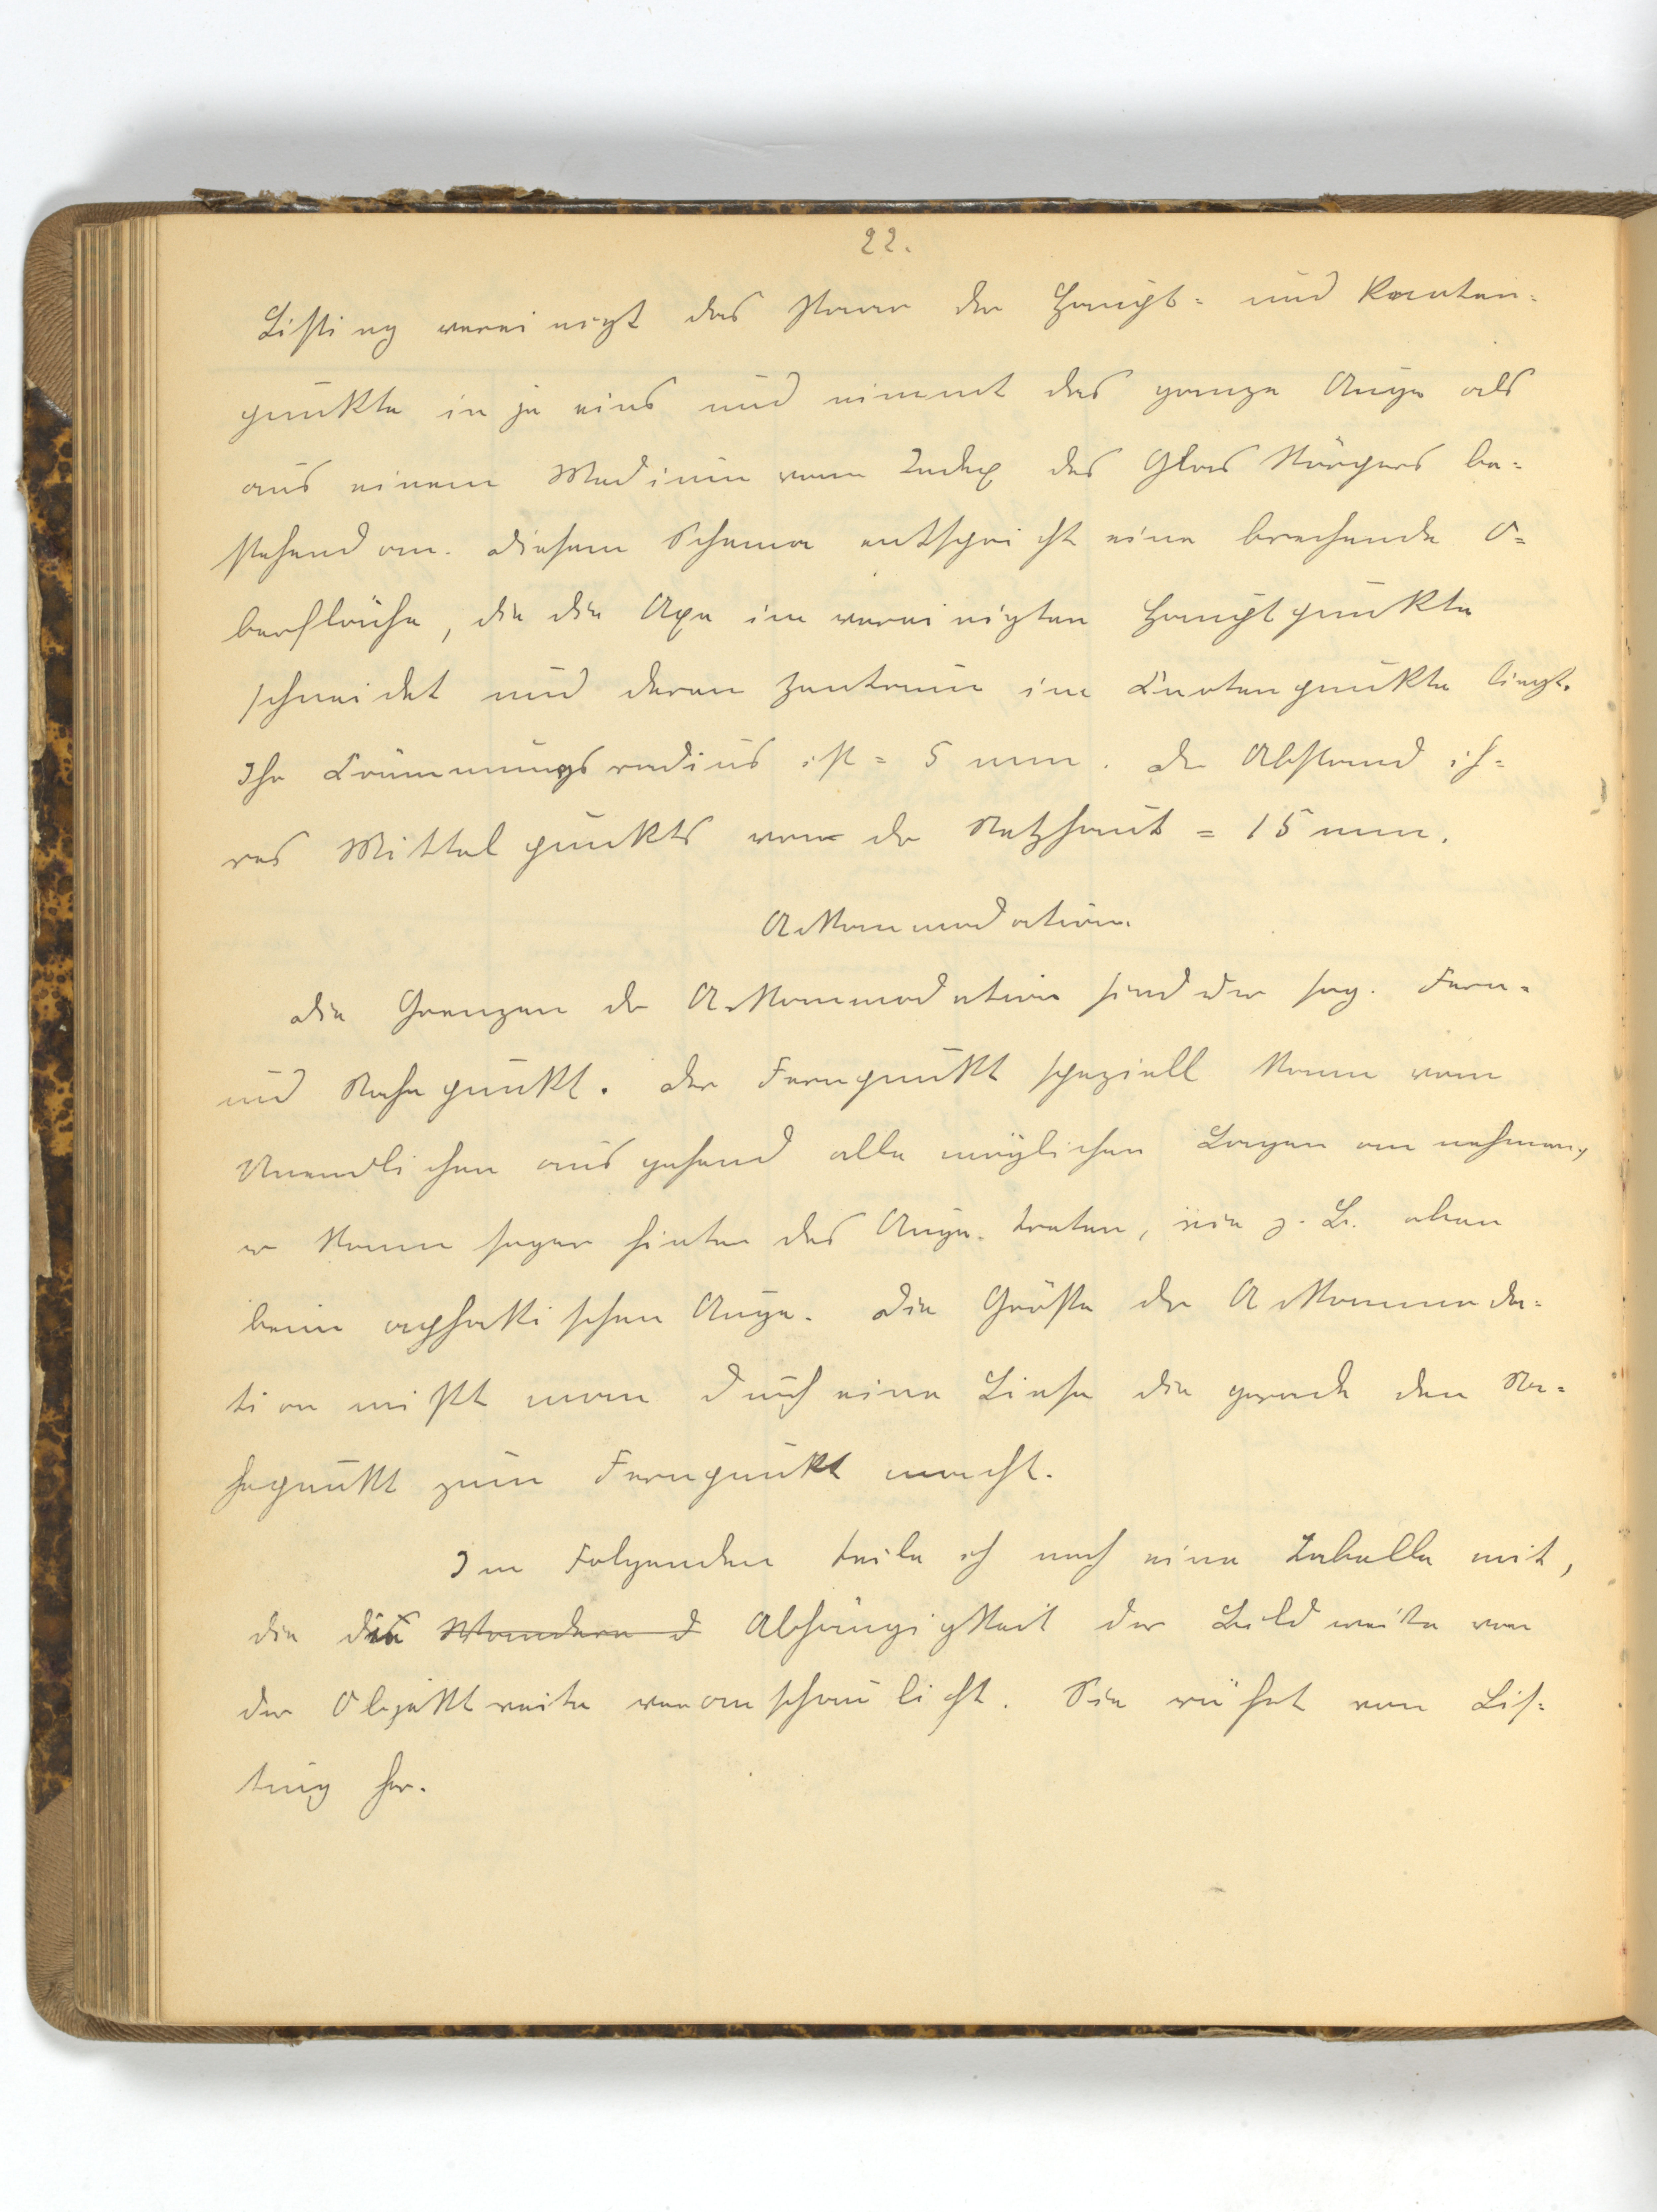 22.
Listing vereinigt das Paar der Haupt= und Knoten=
punkte in je eins und nimmt das ganze Auge als
aus einem Medium vom Index des Glas Körpers be=
stehend an. Diesem Schema entspricht eine brechende O=
berfläche, die die Axe im vereinigten Hauptpunkte
schneidet und deren Zentrum im Knotenpunkte liegt.
Ihr Krümmungsradius ist = 5 mm. Der Abstand ih=
res Mittelpunkts von der Netzhaut = 15 mm.
Akkommodation.
Die Grenzen der Akkommodation sind der sog. Fern=
und Nahepunkt. Der Fernpunkt speziell kann vom
Unendlichen ausgehend alle möglichen Lagen annehmen,
er kann sogar hinter das Auge treten, wie z. B. eben
beim aphakischen Auge. Die Größe der Akkommoda=
tion mißt man durch eine Linse die gerade den Na=
hepunkt zum Fernpunkt macht.
Im Folgenden teile ich noch eine Tabelle mit,
die die Wandern d Abhängigkeit der Bildweite von
der Objektweite veranschaulicht. Sie rührt von Lis=
ting her.